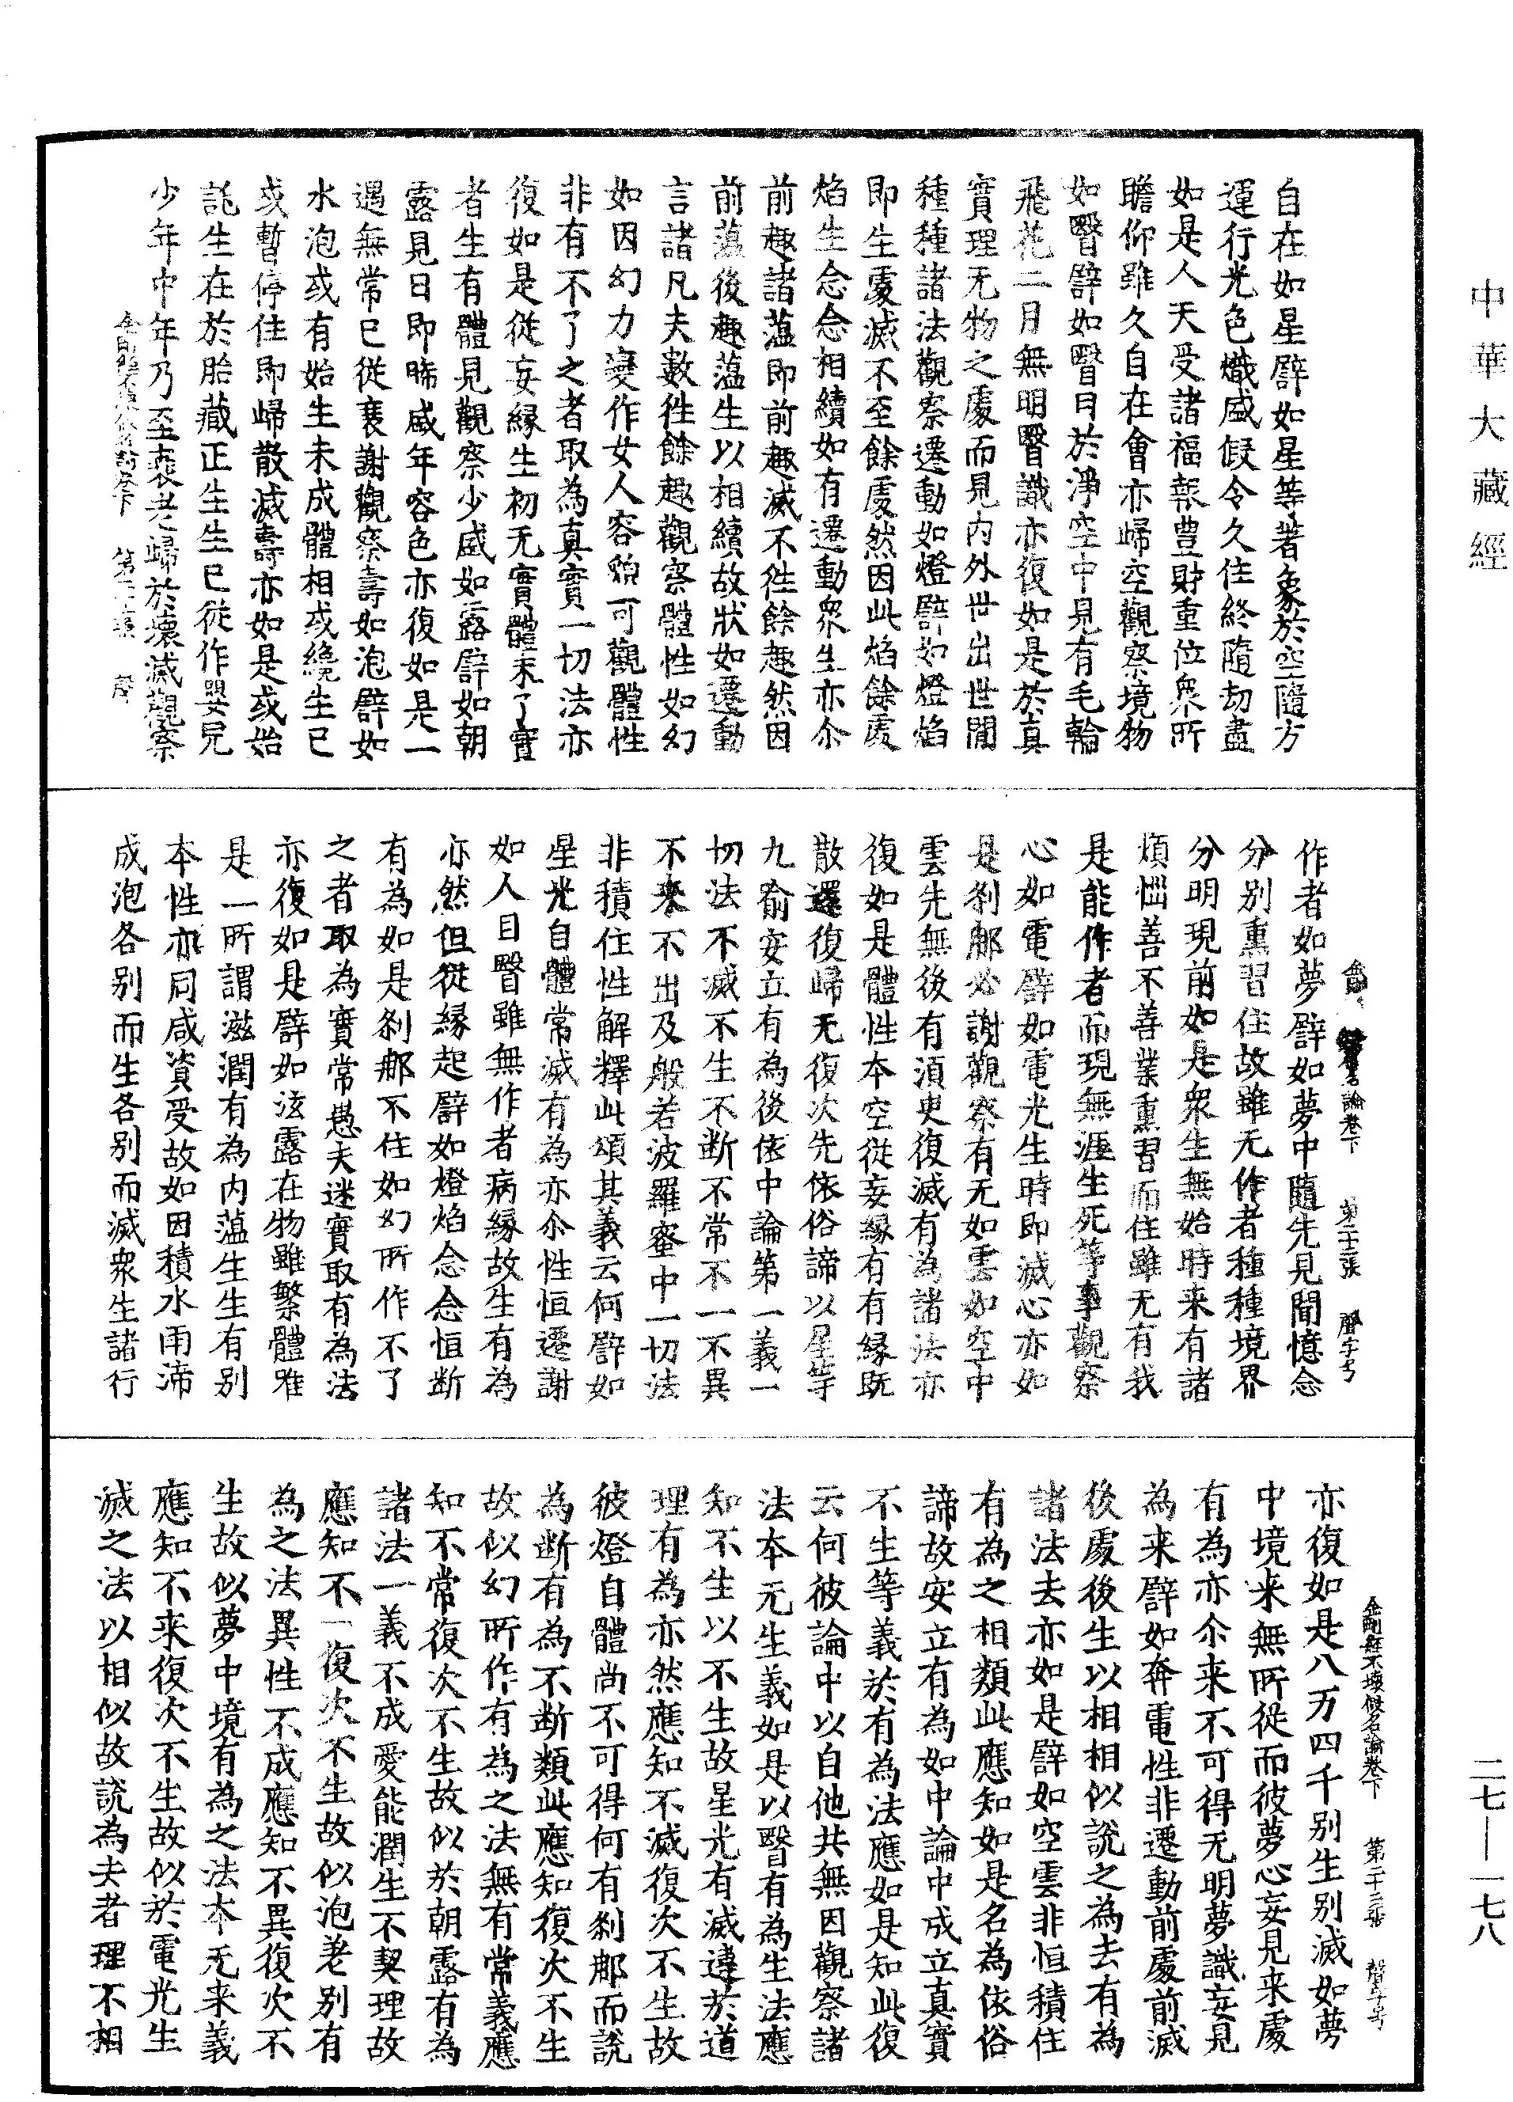 中華大藏經
二七—一七八
自在如星譬如星等著象於空隨方
運行光色熾盛假令久住終隨劫盡
如是人天受諸福報豊財重位衆所
瞻仰雖久自在會亦歸空觀察境物
如瞖譬如瞖目於淨空中見有毛輪
飛花二月無明瞖識亦復如是於真
實理无物之處而見内外世出世間
種種諸法觀察遷動如燈譬如燈焰
即生處滅不至餘處然因此焰餘處
焰生念念相續如有遷動衆生亦尒
前趣諸蕰即前趣滅不徃餘趣然因
前蕰後趣蕰生以相續故狀如遷動
言諸凡夫數徃餘趣觀察體性如幻
如因幻力變作女人容貌可觀體性
非有不了之者取為真實一切法亦
復如是從妄縁生初无實體未了實
者生有體見觀察少盛如露譬如朝
露見日即晞盛年容色亦復如是一
遇無常已從衰謝觀察壽如泡譬如
水泡或有始生未成體相或纔生已
或暫停住即歸散滅壽亦如是或始
託生在於胎藏正生生已從作嬰兒
少年中年乃至衰老歸於壞滅觀察
論卷下 第二十二張 聲字号
作者如夢譬如夢中隨先見聞憶念
分別熏習住故雖无作者種種境界
分明現前如是衆生無始時来有諸
煩惱善不善業熏習而住雖无有我
是能作者而現無涯生死等事觀察
心如電譬如電光生時即滅心亦如
是刹那必謝觀察有无如雲如空中
雲先無後有須臾復滅有為諸法亦
復如是體性本空從妄縁有有縁既
散還復歸无復次先依俗諦以星等
九喻安立有為後依中論第一義一
切法不滅不生不斷不常不一不異
不來不出及般若波羅蜜中一切法
非積住性解釋此頌其義云何譬如
星光自體常滅有為亦尒性恒遷謝
如人目瞖雖無作者病縁故生有為
亦然但從緣起譬如燈焰念念恒斷
有為如是刹那不住如幻所作不了
之者取為實常愚夫迷實取有為法
亦復如是譬如泫露在物雖繁體唯
是一所謂滋潤有為内蕰生生有別
本性亦同咸資受故如因積水雨渧
成泡各別而生各別而滅衆生諸行
金剛經不壞假名論卷下 第二十三張 聲字号
亦復如是八万四千別生別滅如夢
中境来無所從而彼夢心妄見来處
有為亦尒来不可得无明夢識妄見
為来譬如奔電性非遷動前處前滅
後處後生以相相似說之為去有為
諸法去亦如是譬如空雲非恒積住
有為之相類此應知如是名為依俗
諦故安立有為如中論中成立真實
不生等義於有為法應如是知此復
云何彼論中以自他共無因觀察諸
法本无生義如是以瞖有為生法應
知不生以不生故星光有滅違於道
理有為亦然應知不滅復次不生故
彼燈自體尚不可得何有刹那而說
為斷有為不斷類此應知復次不生
故似幻所作有為之法無有常義應
知不常復次不生故似於朝露有為
諸法一義不成愛能潤生不契理故
應知不一復次不生故似泡差別有
為之法異性不成應知不異復次不
生故似夢中境有為之法本无来義
應知不来復次不生故似於電光生
滅之法以相似故說為去者理不相